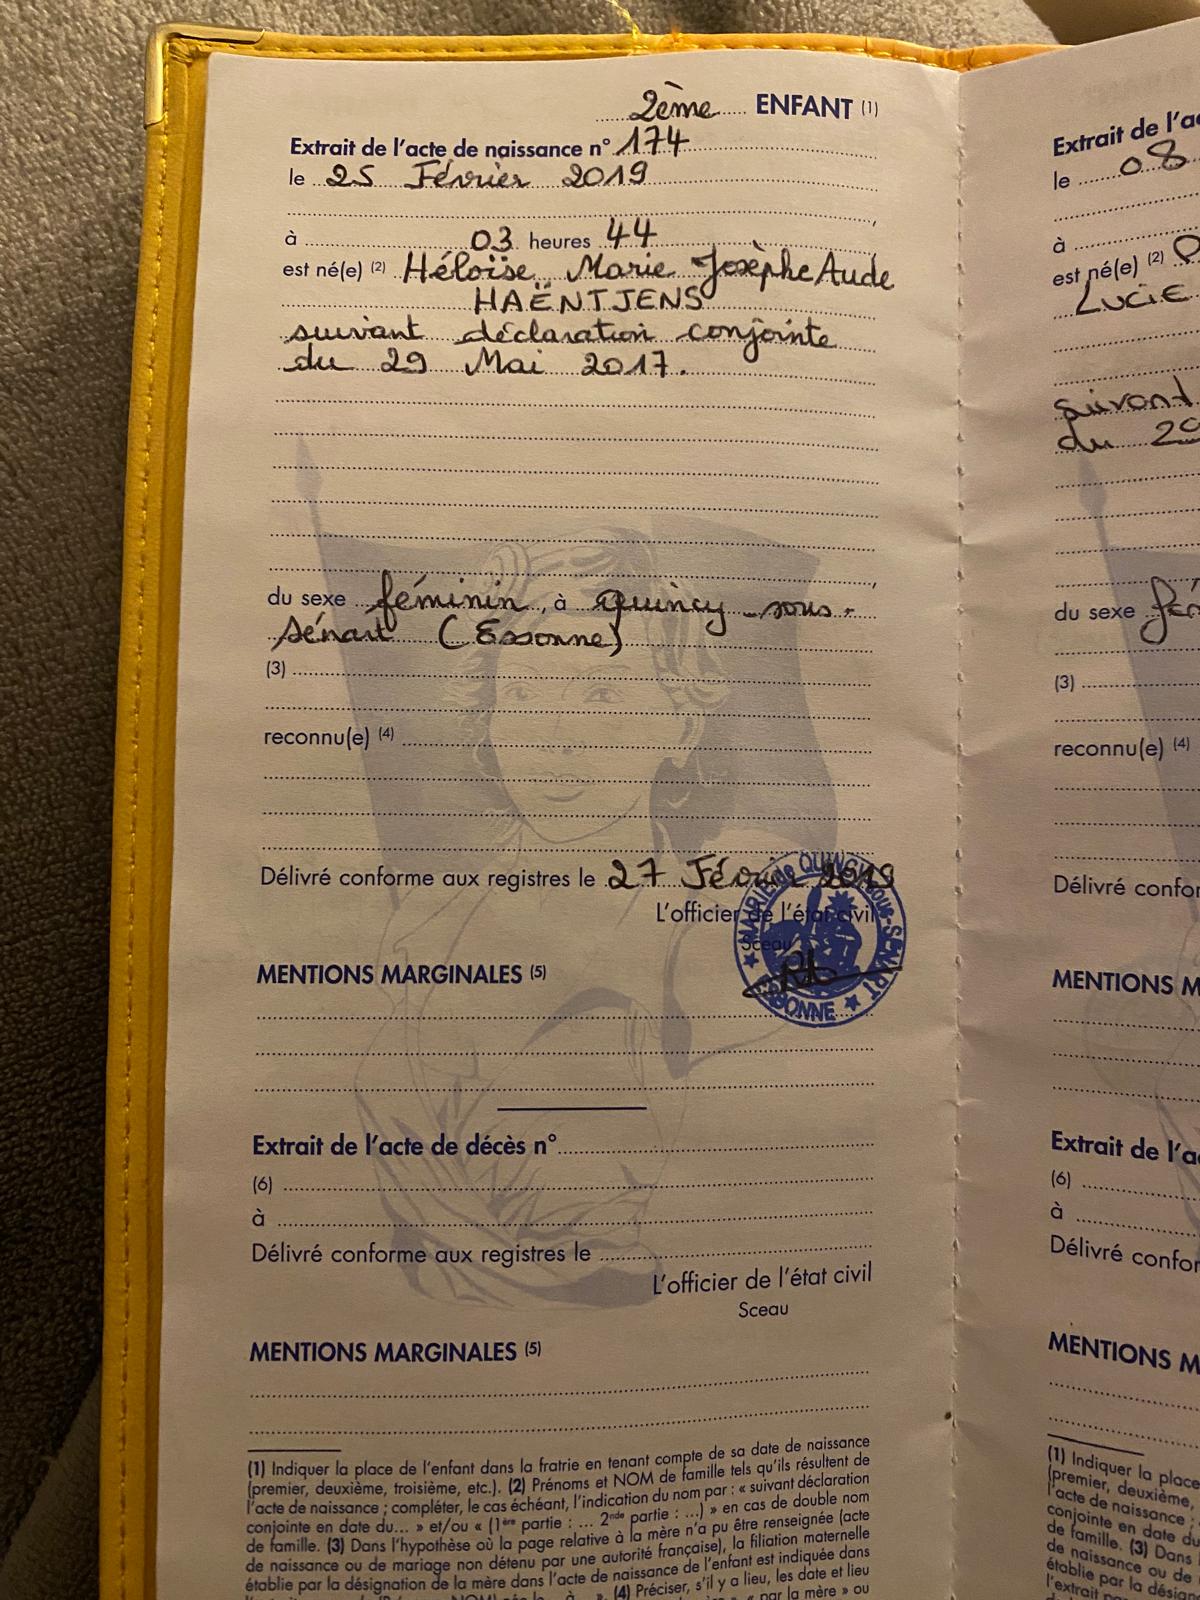 2ème ENFANT (1)
Extrait de l'acte de naissance n° 174
le 25 Février 2019
à 03 heures 44
est né(e) (2) Héloïse Marie Josèphe Aude
HAËNTJENS
suivant déclaration conjointe
du 29 Mai 2017.
du sexe féminin, à Quincy-sous-
Sénart (Essonne)
(3)
reconnu(e) (4)
Délivré conforme aux registres le 27 Février 2019
L'officier de l'état civil
Sceau
MAIRIE de QUINCY-sous-SENART
ESSONNE
MENTIONS MARGINALES (5)
Extrait de l'acte de décès n°
(6)
à
Délivré conforme aux registres le
L'officier de l'état civil
Sceau
MENTIONS MARGINALES (5)
(1) Indiquer la place de l'enfant dans la fratrie en tenant compte de sa date de naissance
(premier, deuxième, troisième, etc.). (2) Prénoms et NOM de famille tels qu'ils résultent de
l'acte de naissance ; compléter, le cas échéant, l'indication du nom par : « suivant déclaration
conjointe en date du... » et/ou « (1ère partie : ... 2nde partie : ...) » en cas de double nom
de famille. (3) Dans l'hypothèse où la page relative à la mère n'a pu être renseignée (acte
de naissance ou de mariage non détenu par une autorité française), la filiation maternelle
établie par la désignation de la mère dans l'acte de naissance de l'enfant est indiquée dans
(4) Préciser, s'il y a lieu, les date et lieu
« par la mère » ou
Extrait de l'a
le 08
à
est né(e) (2)
LUCIE
suivant
du 29
du sexe
(3)
reconnu(e) (4)
Délivré confor
MENTIONS M
Extrait de l'a
(6)
à
Délivré confor
MENTIONS M
(1) Indiquer la place
(premier, deuxième,
l'acte de naissance ;
conjointe en date du
de famille. (3) Dans l
de naissance ou de
établie par la désign
l'extrait